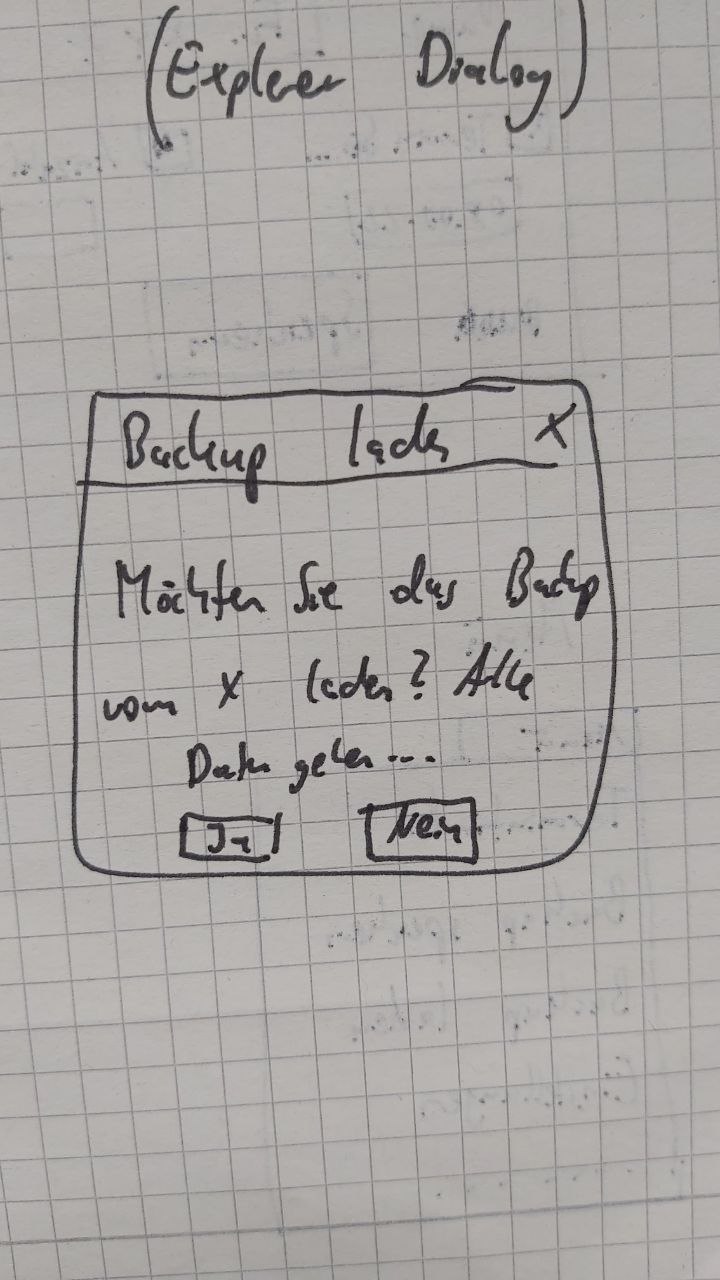 (Explorer Dialog)
Backup laden X
Möchten Sie das Backup
vom X laden? Alle
Daten gehen ...
Ja Nein